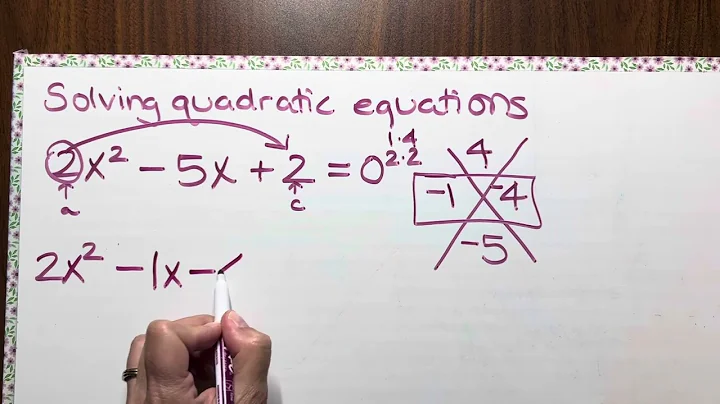 Solving quadratic equations
1·4
2·2
2x² - 5x + 2 = 0
a
c
4
-1 -4
-5
2x² - 1x -